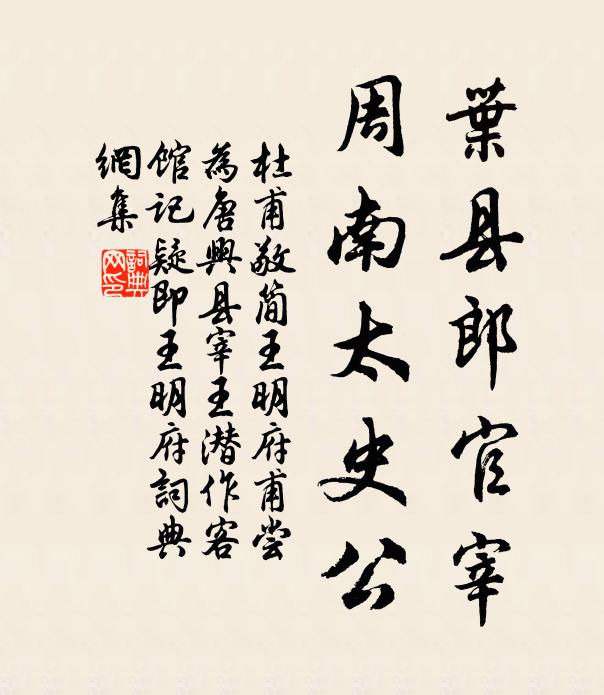 葉县郎官宰
周南太史公
杜甫敬簡王明府甫尝
為唐興县宰王潜作客
馆记疑即王明府詞典
網集
詞典
网印